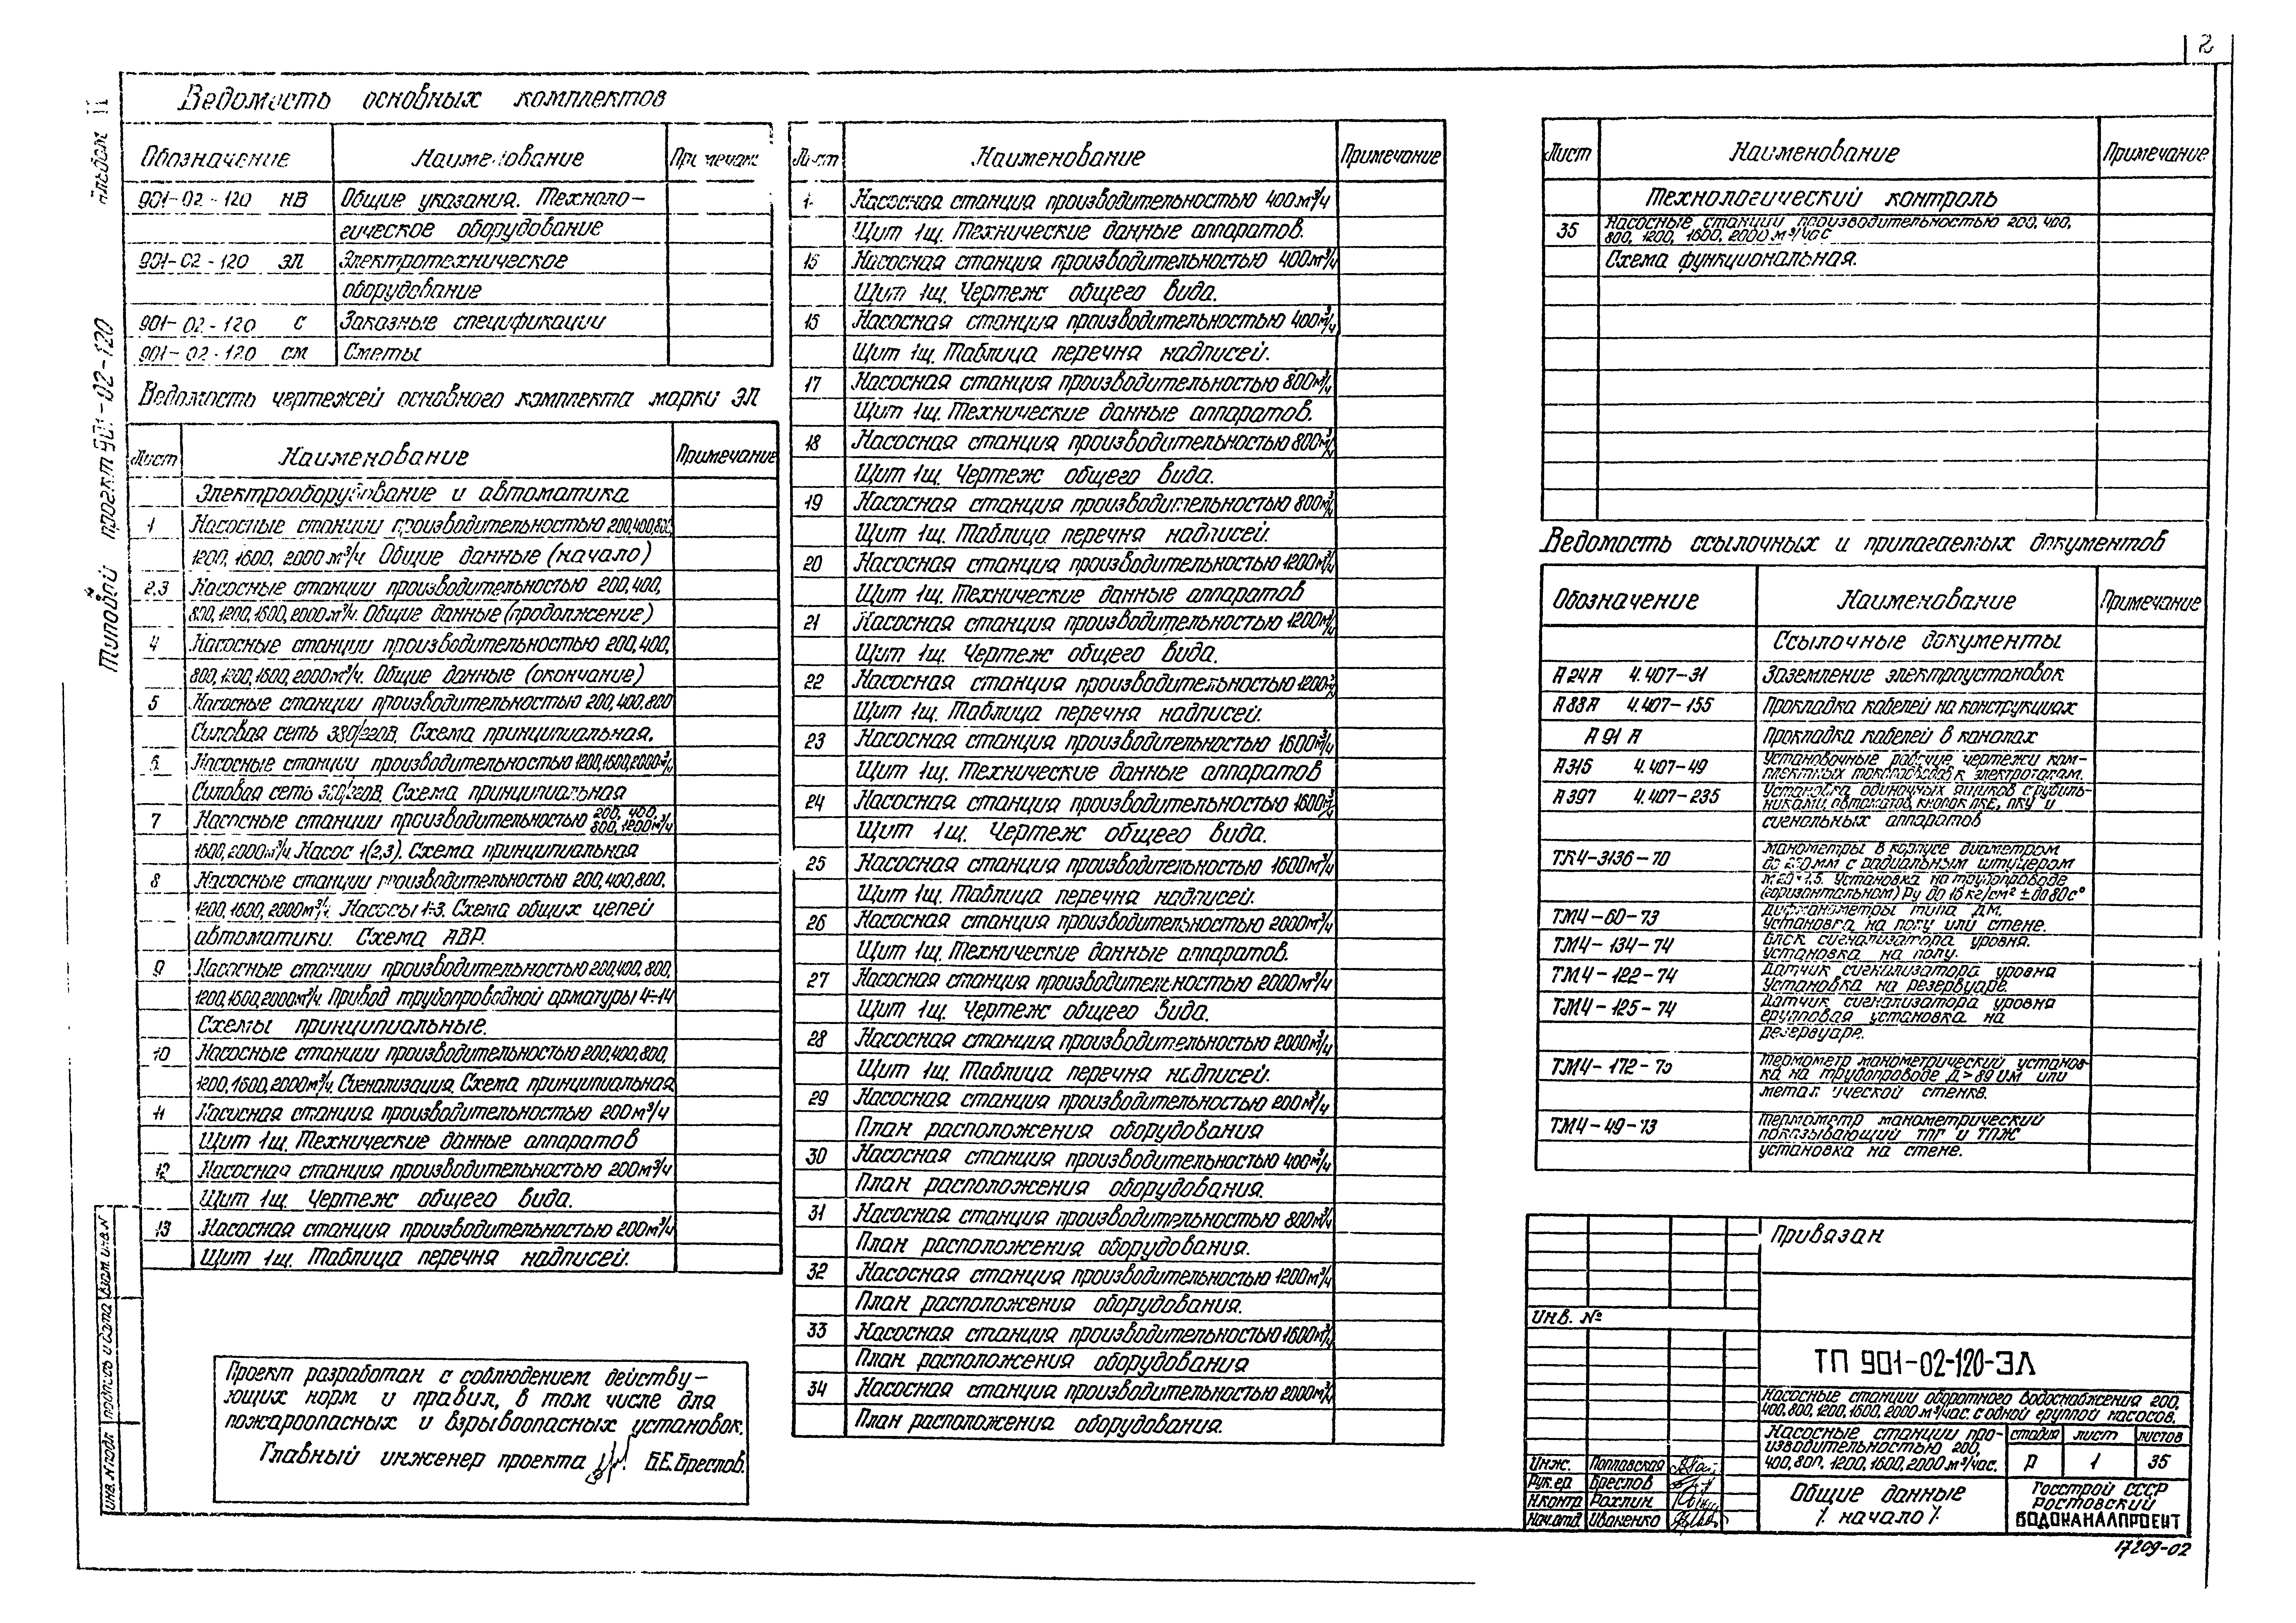 2
Альбом II
Типовой проект 901-02-120
Ведомость основных комплектов
Обозначение Наименование Примечание
901-02-120 НВ Общие указания. Техноло-
гическое оборудование
901-02-120 ЭЛ Электротехническое
оборудование
901-02-120 С Заказные спецификации
901-02-120 СМ Сметы
Ведомость чертежей основного комплекта марки ЭЛ
Лист Наименование Примечание
Электрооборудование и автоматика
1 Насосные станции производительностью 200,400,800,
1200, 1600, 2000 м³/ч Общие данные (начало)
2,3 Насосные станции производительностью 200,400,
800,1200,1600,2000м³/ч. Общие данные (продолжение)
4 Насосные станции производительностью 200,400,
800,1200,1600,2000м³/ч. Общие данные (окончание)
5 Насосные станции производительностью 200,400,800
Силовая сеть 380/220В. Схема принципиальная.
6 Насосные станции производительностью 1200,1600,2000м³/ч
Силовая сеть 380/220В. Схема принципиальная
7 Насосные станции производительностью 200, 400, 800, 1200м³/ч
1600,2000м³/ч. Насос 1(2,3). Схема принципиальная
8 Насосные станции производительностью 200,400,800,
1200, 1600, 2000м³/ч. Насосы 1÷3. Схема общих цепей
автоматики. Схема АВР.
9 Насосные станции производительностью 200,400,800,
1200,1600,2000м³/ч Привод трубопроводной арматуры 4÷14
Схемы принципиальные.
10 Насосные станции производительностью 200,400,800,
1200,1600,2000м³/ч. Сигнализация. Схема принципиальная
11 Насосная станция производительностью 200м³/ч
Щит 1щ. Технические данные аппаратов
12 Насосная станция производительностью 200м³/ч
Щит 1щ. Чертеж общего вида.
13 Насосная станция производительностью 200м³/ч
Щит 1щ. Таблица перечня надписей.
Проект разработан с соблюдением действу-
ющих норм и правил, в том числе для
пожароопасных и взрывоопасных установок.
Главный инженер проекта Б.Е.Бреслов.
Лист Наименование Примечание
Насосная станция производительностью 400м³/ч
Щит 1щ. Технические данные аппаратов.
15 Насосная станция производительностью 400м³/ч
Щит 1щ. Чертеж общего вида.
Насосная станция производительностью 400м³/ч
Щит 1щ. Таблица перечня надписей.
17 Насосная станция производительностью 800м³/ч
Щит 1щ. Технические данные аппаратов.
18 Насосная станция производительностью 800м³/ч
Щит 1щ. Чертеж общего вида.
19 Насосная станция производительностью 800м³/ч
Щит 1щ. Таблица перечня надписей.
20 Насосная станция производительностью 1200м³/ч
Щит 1щ. Технические данные аппаратов
21 Насосная станция производительностью 1200м³/ч
Щит 1щ. Чертеж общего вида.
22 Насосная станция производительностью 1200м³/ч
Щит 1щ. Таблица перечня надписей.
23 Насосная станция производительностью 1600м³/ч
Щит 1щ. Технические данные аппаратов
24 Насосная станция производительностью 1600м³/ч
Щит 1щ. Чертеж общего вида.
25 Насосная станция производительностью 1600м³/ч
Щит 1щ. Таблица перечня надписей.
26 Насосная станция производительностью 2000м³/ч
Щит 1щ. Технические данные аппаратов.
27 Насосная станция производительностью 2000м³/ч
Щит 1щ. Чертеж общего вида.
28 Насосная станция производительностью 2000м³/ч
Щит 1щ. Таблица перечня надписей.
29 Насосная станция производительностью 200м³/ч
План расположения оборудования
30 Насосная станция производительностью 400м³/ч
План расположения оборудования.
31 Насосная станция производительностью 800м³/ч
План расположения оборудования.
32 Насосная станция производительностью 1200м³/ч
План расположения оборудования.
33 Насосная станция производительностью 1600м³/ч
План расположения оборудования
34 Насосная станция производительностью 2000м³/ч
План расположения оборудования.
Лист Наименование Примечание
Технологический контроль
35 Насосные станции производительностью 200, 400,
800, 1200, 1600, 2000 м³/час
Схема функциональная.
Ведомость ссылочных и прилагаемых документов
Обозначение Наименование Примечание
Ссылочные документы
А24А 4.407-31 Заземление электроустановок
А88А 4.407-155 Прокладка кабелей на конструкциях
А91А Прокладка кабелей в каналах
А315 4.407-49 Установочные рабочие чертежи ком-
плектных токоподводов к электроталям.
А397 4.407-235 Установка одиночных ящиков с рубиль-
никами, автоматов, кнопок ПКЕ, ПКУ и
сигнальных аппаратов
ТК4-3136-70 Манометры в корпусе диаметром
до 250мм с радиальным штуцером
М20×1,5. Установка на трубопроводе
(горизонтальном) Ру до 16 кг/см² до 80с°
ТМ4-60-73 Дифманометры типа ДМ.
Установка на полу или стене.
ТМ4-134-74 Блок сигнализатора уровня.
Установка на полу.
ТМ4-122-74 Датчик сигнализатора уровня
Установка на резервуаре.
ТМ4-125-74 Датчик сигнализатора уровня
групповая установка на
резервуаре.
ТМ4-172-75 Термометр манометрический установ-
ка на трубопроводе Д>89 мм или
металлической стенке.
ТМ4-49-73 Термометр манометрический
показывающий ТПГ и ТПЖ
установка на стене.
Привязан
Инв. №
ТП 901-02-120-ЭЛ
Насосные станции оборотного водоснабжения 200,
400,800, 1200, 1600, 2000 м³/час. с одной группой насосов.
Насосные станции про-
изводительностью 200,
400, 800, 1200, 1600, 2000 м³/час.
стадия лист листов
Р 1 35
Инж. Поплавская
Рук.гр. Бреслов
Н.контр Рахлин
Нач.отд. Иваненко
Общие данные
/ начало /.
Госстрой СССР
Ростовский
ВОДОКАНАЛПРОЕКТ
17209-02
инв. № подл. подпись и дата взам. инв. №